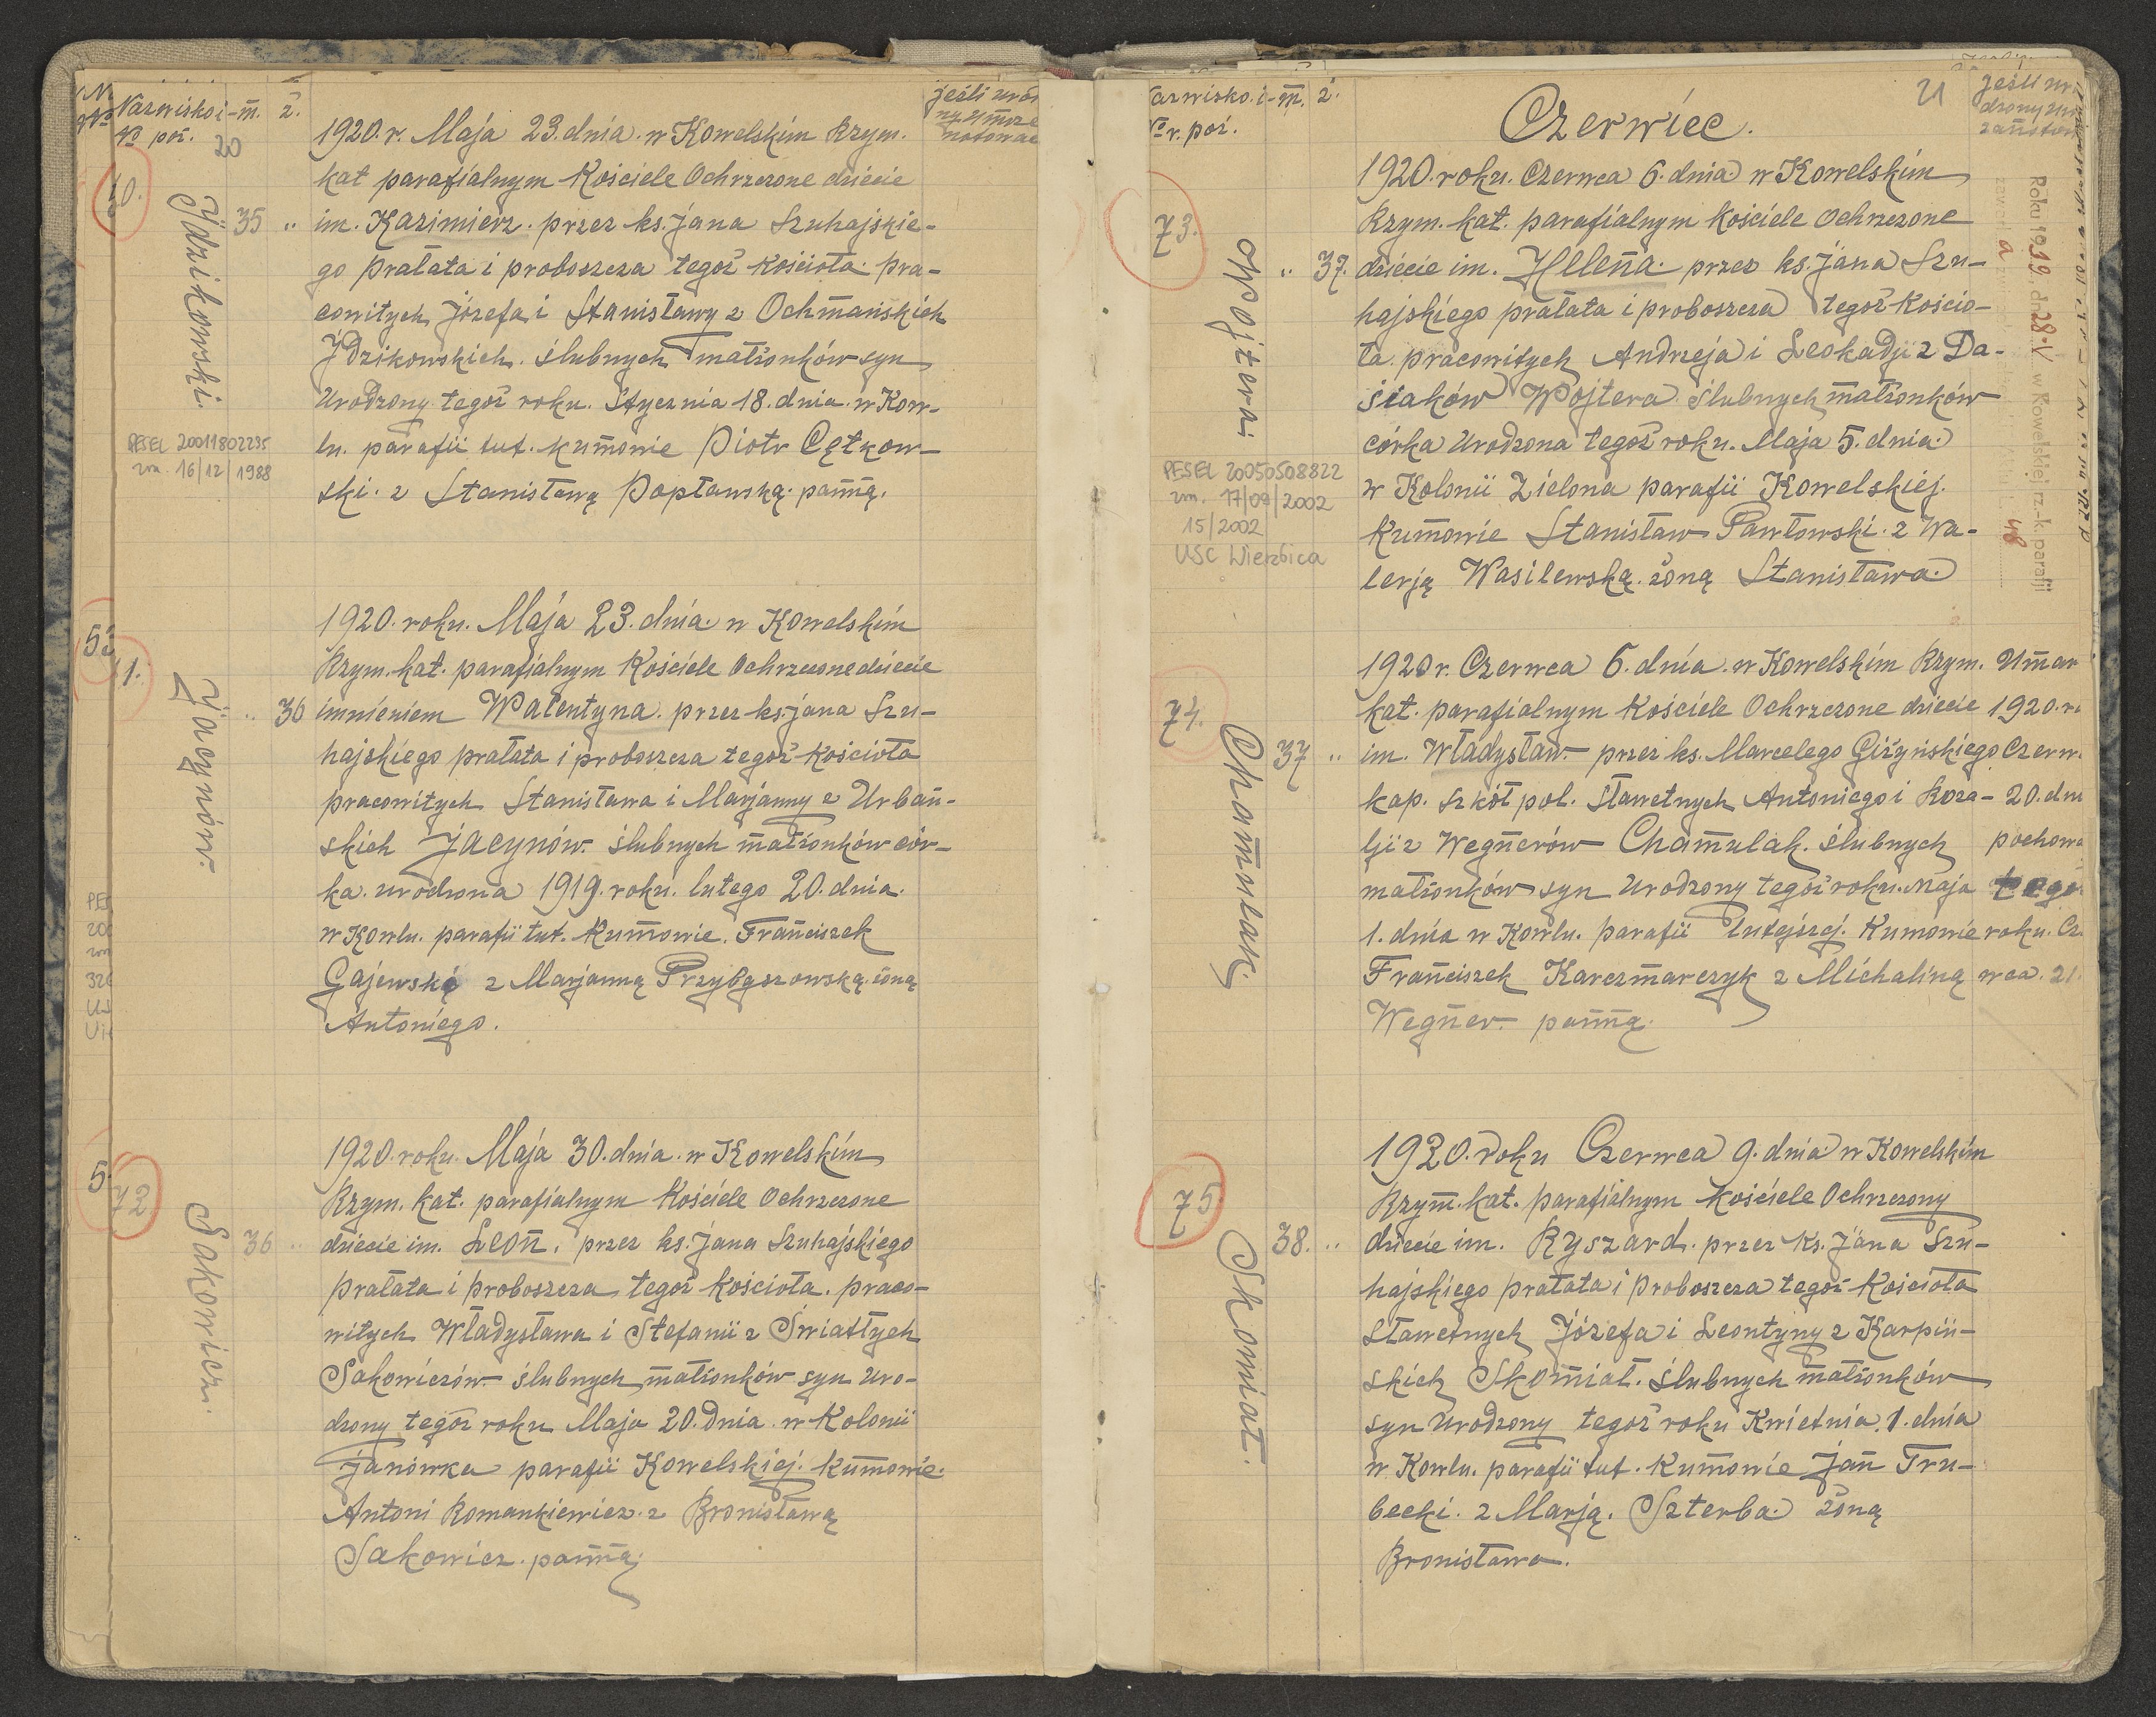 Nazwisko i
№ poż.
-m.
ż.
20
jeśli uro
ny umrze
notować
70.
Jdzikowski.
35 "
1920. r. Maja 23. dnia. w Kowelskim Rzym.
kat parafialnym Kościele Ochrzczone dziecie
im. Kazimierz. przez ks. Jana Szuhajskie-
go Prałata i proboszcza tegoż Kościoła. pra-
cowitych Józefa i Stanisławy z Ochmańskich
Jdzikowskich. ślubnych małżonków syn
Urodzony tegoż roku. Stycznia 18. dnia. w Kow-
lu. parafii tut. Kumowie Piotr Cętkow-
ski. z Stanisławą Popławską. panną.
PESEL 20011802235
zm. 16/12/1988
53
71.
Jacynów.
.. 36
1920. roku. Maja 23. dnia. w Kowelskim
Rzym. kat. parafialnym Kościele Ochrzczone dziecie
imnieniem Walentyna. przez ks. Jana Szu-
hajskiego prałata i proboszcza tegoż Kościoła
pracowitych Stanisława i Marjanny z Urbań-
skich Jacynów. ślubnych małżonków cór-
ka. urodzona 1919. roku. lutego 20. dnia.
w Kowlu. parafii tut. Kumowie. Franciszek
Gajewski z Marjanną Przybyszowską. żoną
Antoniego.
5.
72
Sakowicz.
36 ..
1920. roku. Maja 30. dnia. w Kowelskim
Rzym. kat. parafialnym Kościele Ochrzczone
dziecie im. Leon. przez ks. Jana Szuhajskiego
prałata i proboszcza tegoż Kościoła. praco-
witych Władysława i Stefanii z Światłych
Sakowiczów. ślubnych małżonków syn Uro-
dzony tegoż roku Maja 20. Dnia. w Kolonii
Janówka parafii Kowelskiej. Kumowie.
Antoni Romankiewicz. z Bronisławą
Sakowicz. panną.
Nazwisko. i
№ r. poż.
-m.
ż.
21
Jeśli uro
dzony um
zanotow
Czerwiec.
73.
Wojtera.
.. 37.
1920. roku. Czerwca 6. dnia w Kowelskim
Rzym. kat. parafialnym kościele Ochrzczone
dziecie im. Helena. przez ks. Jana Szu-
hajskiego prałata i proboszcza tegoż Kościo-
ła. pracowitych Andrzeja i Leokadji z Da-
siaków Wojtera. ślubnych małżonków
córka Urodzona tegoż roku. Maja 5. dnia.
w Kolonii Zielona parafii Kowelskiej.
Kumowie Stanisław Pawłowski. z Wa-
lerją Wasilewską. żoną Stanisława.
PESEL 20050508822
zm. 17/09/2002
15/2002
USC Wierzbica
Roku 1919, d. 28. V w Kowelskiej rz.-k. parafji
48
74.
Chamulak.
37 ..
1920 r. Czerwca 6. dnia. w Kowelskim Rzym.
kat. parafialnym Kościele Ochrzczone dziecie
im. Władysław. przez ks. Marcelego Giżyńskiego
kap. szkół pol. Sławetnych Antoniego i Roza-
lji z Wegnerów Chamulak. ślubnych
małżonków syn Urodzony tegoż roku. Maja
1. dnia w Kowlu. parafii Tutejszej. Kumowie
Franciszek Karczmarczyk z Michaliną
Wegner. panną.
Umar
1920. r.
Czerw.
20. dn
pochowa
tego
roku. Cz.
wca. 21.
75.
Skomiał.
38. ..
1920. roku Czerwca 9. dnia w Kowelskim
Rzym. kat. parafialnym kościele Ochrzczony
dziecie im. Ryszard. przez Ks. Jana Szu-
hajskiego prałata i Proboszcza tegoż Kościoła
Sławetnych Józefa i Leontyny z Karpiń-
skich Skomiał. ślubnych małżonków
syn Urodzony tegoż roku Kwietnia. 1. dnia
w Kowlu. parafii tut. Kumowie Jan Tru-
becki. z Marją. Szterba. żoną
Bronisława.